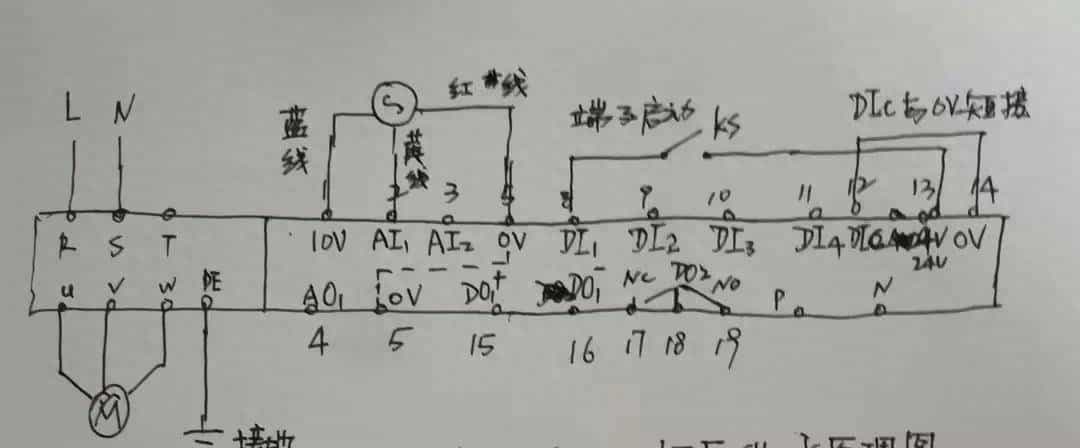 L N
蓝线
S
红线
黄线
端子启动
KS
DIC与0V短接
1 2 3 8 9 10 11 12 13 14
R S T
10V AI1 AI2 0V DI1 DI2 DI3 DI4 DIC 24V 0V
U V W PE
AO1 0V DO1+ DO1- NC DO2 NO P N
4 5 15 16 17 18 19
M
接地
原理图